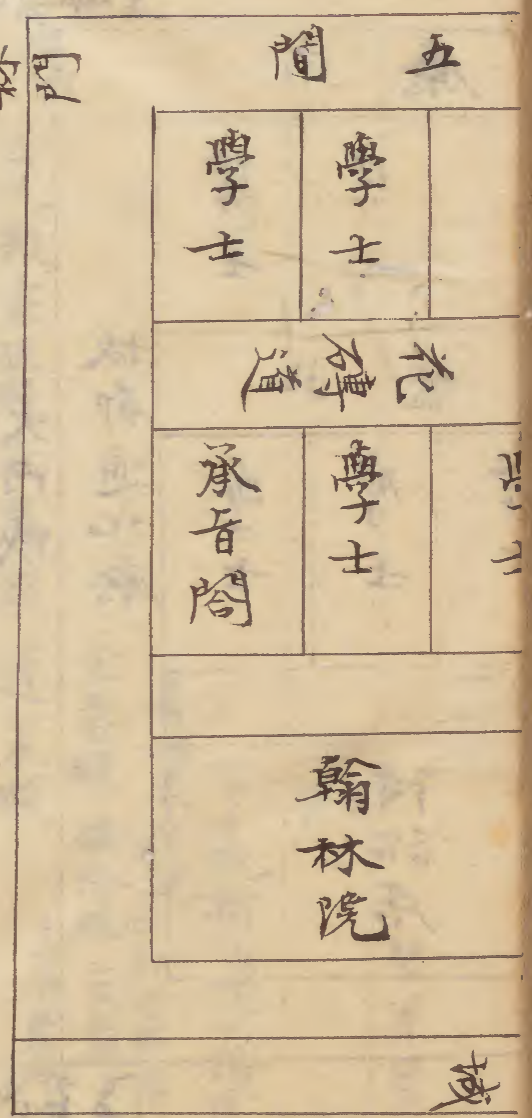 五間
學士
學士
花磚道
學士
承旨閣
翰林院
城
門